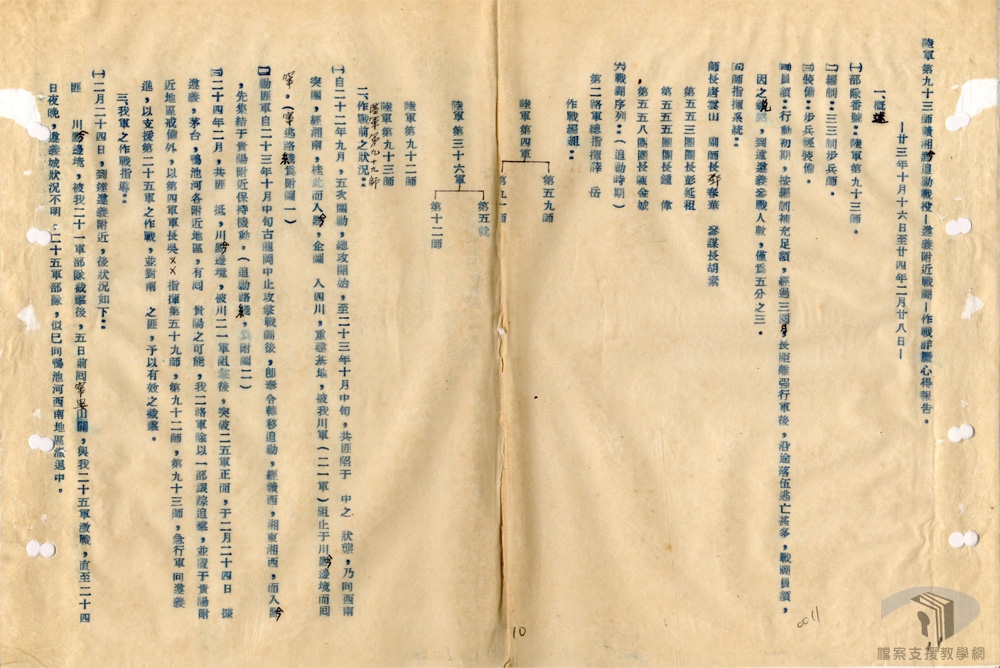 陸軍第九十三師贛湘黔追動戰役—遵義附近戰鬪—作戰詳歷心得報告。
—廿三年十月十六日至廿四年二月廿八日—
一、概述
(一)部隊番號:陸軍第九十三師。
(二)編制:三三制步兵師。
(三)裝備:步兵輕裝備。
(四)員額:行動初期,按編制補充足額,經過三閱月長距離強行軍後,沿途落伍逃亡甚多,戰鬪員額,
因之銳減,到達遵義參戰人數,僅爲五分之三。
(五)師指揮系統:
師長唐雲山 副師長 春華 參謀長胡素
第五五三團團長彭延祖
第五五五團團長鍾 偉
第五五八團團長陳金城
(六)戰鬪序列:(追動時期)
第二路軍總指揮薛 岳
作戰編組:
陸軍第四軍
第五九師
第九十師
陸軍第三十六軍
第五師
第十二師
陸軍第九十二師
陸軍第九十三師
陸軍第九十九師
二、作戰前之狀況:
(一)自二十二年九月,五次圍動,總攻開始,至二十三年十月中旬,共匪陷于 中之 狀態,乃向西南
突圍,經湘南,桂北而入黔,企圖 入四川,重建基地,被我川軍(二一軍)阻止于川黔邊境而回
竄。(竄逃路綫爲附圖一)
(二)動匪軍自二十三年十月中旬古龍岡中止攻擊戰鬪後,卽奉令轉移追動,經贛西,湘東湘西,而入黔
,先集結于貴陽附近保持機動。(追動路綫,爲附圖二)
(三)二十四年二月,共匪 抵 ,川黔邊境,被川二一軍阻擊後,突破二五軍正面,于二月二十四日 據
遵義,茅台,鴨池河各附近地區,有囘 貴陽之可能,我二路軍除以一部跟踪追擊,並置于貴陽附
近地區戒備外,以第四軍軍長吳××指揮第五十九師,第九十二師,第九十三師,急行軍向遵義
進,以支援第二十五軍之作戰,並對南 之匪,予以有效之截擊。
三、我軍之作戰指導:
(一)二月二十四日,到達遵義附近,後狀況如下:
匪 川黔邊境,被我二十一軍部隊截擊後,五日前囘竄婁山關,與我二十五軍激戰,直至二十四
日夜晚,遵義城狀況不明,二十五軍部隊,似已向鴨池河西南地區潰退中。
10
0011
檔案支援教學網